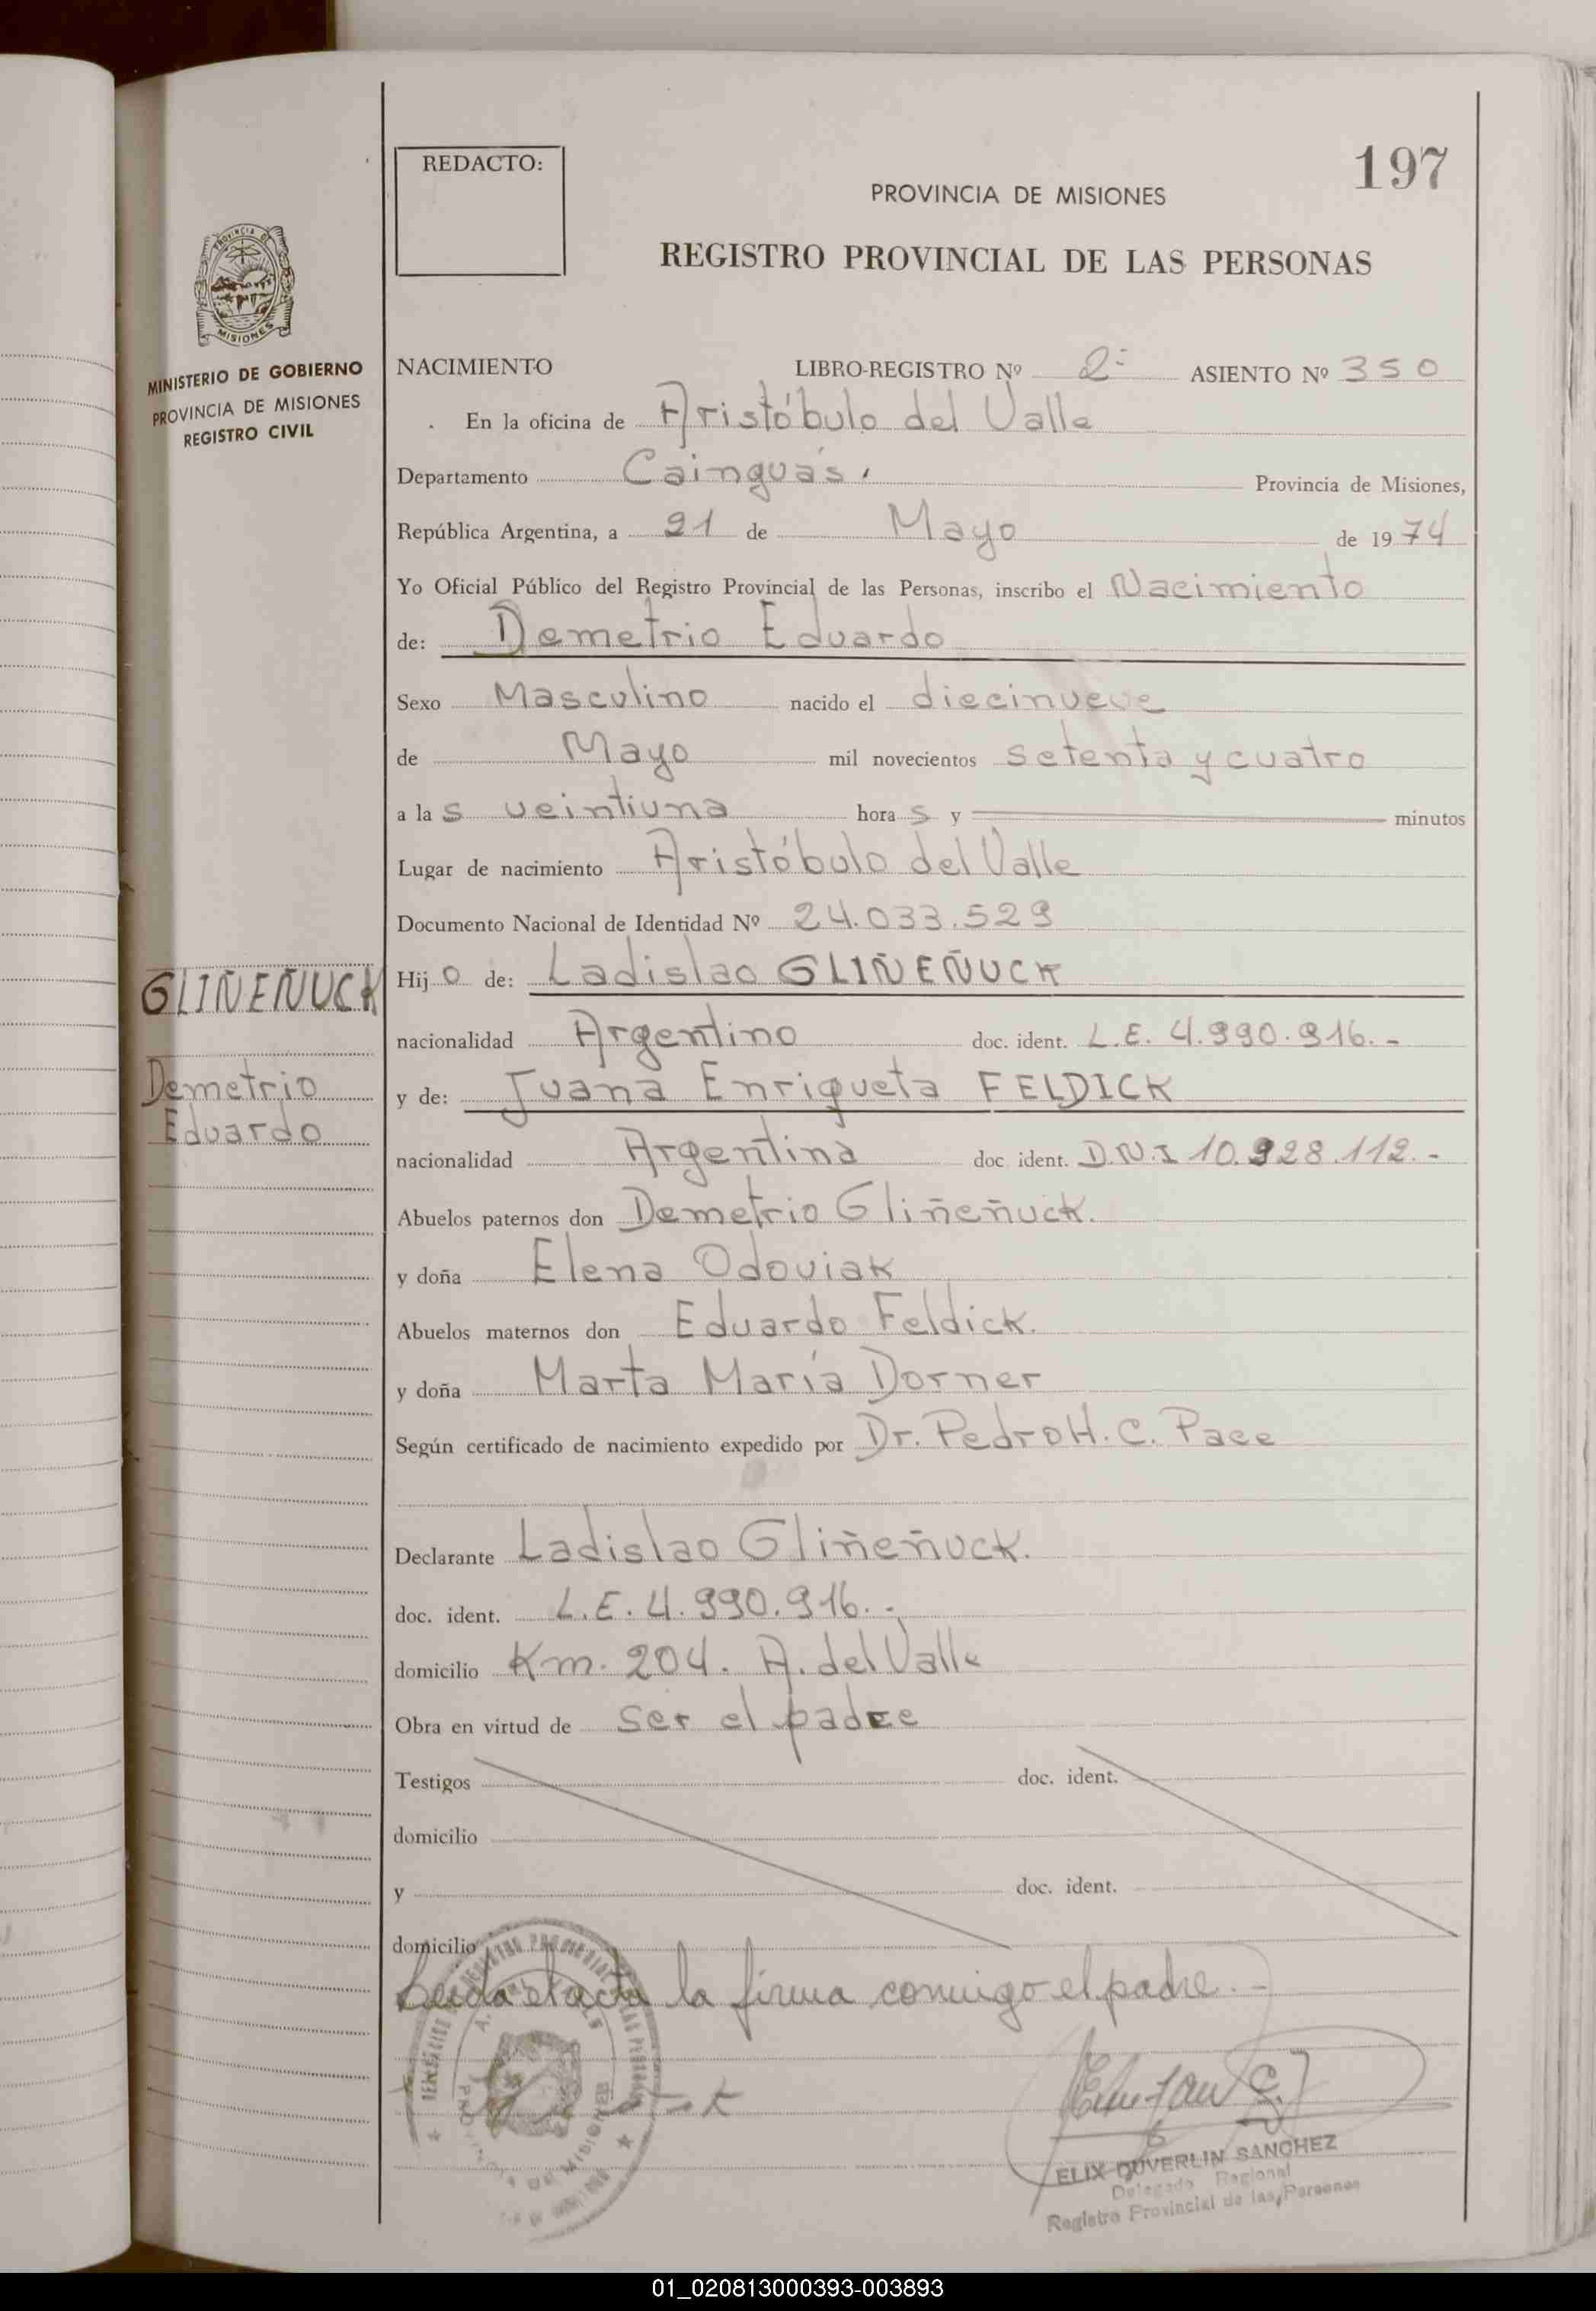 REDACTO:
197
PROVINCIA DE MISIONES
REGISTRO PROVINCIAL DE LAS PERSONAS
PROVINCIA DE
MISIONES
MINISTERIO DE GOBIERNO
PROVINCIA DE MISIONES
REGISTRO CIVIL
NACIMIENTO LIBRO-REGISTRO Nº 2º ASIENTO Nº 350
En la oficina de Aristóbulo del Valle
Departamento Cainguás. Provincia de Misiones,
República Argentina, a 21 de Mayo de 1974
Yo Oficial Público del Registro Provincial de las Personas, inscribo el Nacimiento
de: Demetrio Eduardo
Sexo Masculino nacido el diecinueve
de Mayo mil novecientos setenta y cuatro
a las veintiuna horas y minutos
Lugar de nacimiento Aristóbulo del Valle
Documento Nacional de Identidad Nº 24.033.529
GLIÑEÑUCK
Hijo de: Ladislao GLIÑEÑUCK
nacionalidad Argentino doc. ident. L.E. 4.990.916.-
Demetrio
Eduardo
y de: Juana Enriqueta FELDICK
nacionalidad Argentina doc. ident. D.N.I 10.928.112.-
Abuelos paternos don Demetrio Gliñeñuck.
y doña Elena Odoviak
Abuelos maternos don Eduardo Feldick.
y doña Marta María Dorner
Según certificado de nacimiento expedido por Dr. Pedro H. C. Pace
Declarante Ladislao Gliñeñuck.
doc. ident. L.E. 4.990.916.-
domicilio Km. 204. A. del Valle
Obra en virtud de ser el padre
Testigos doc. ident.
domicilio
y doc. ident.
domicilio
Leida el acta la firma conmigo el padre.-
ELIX DUVERLIN SANCHEZ
Delegado Regional
Registro Provincial de las Personas
01_020813000393-003893